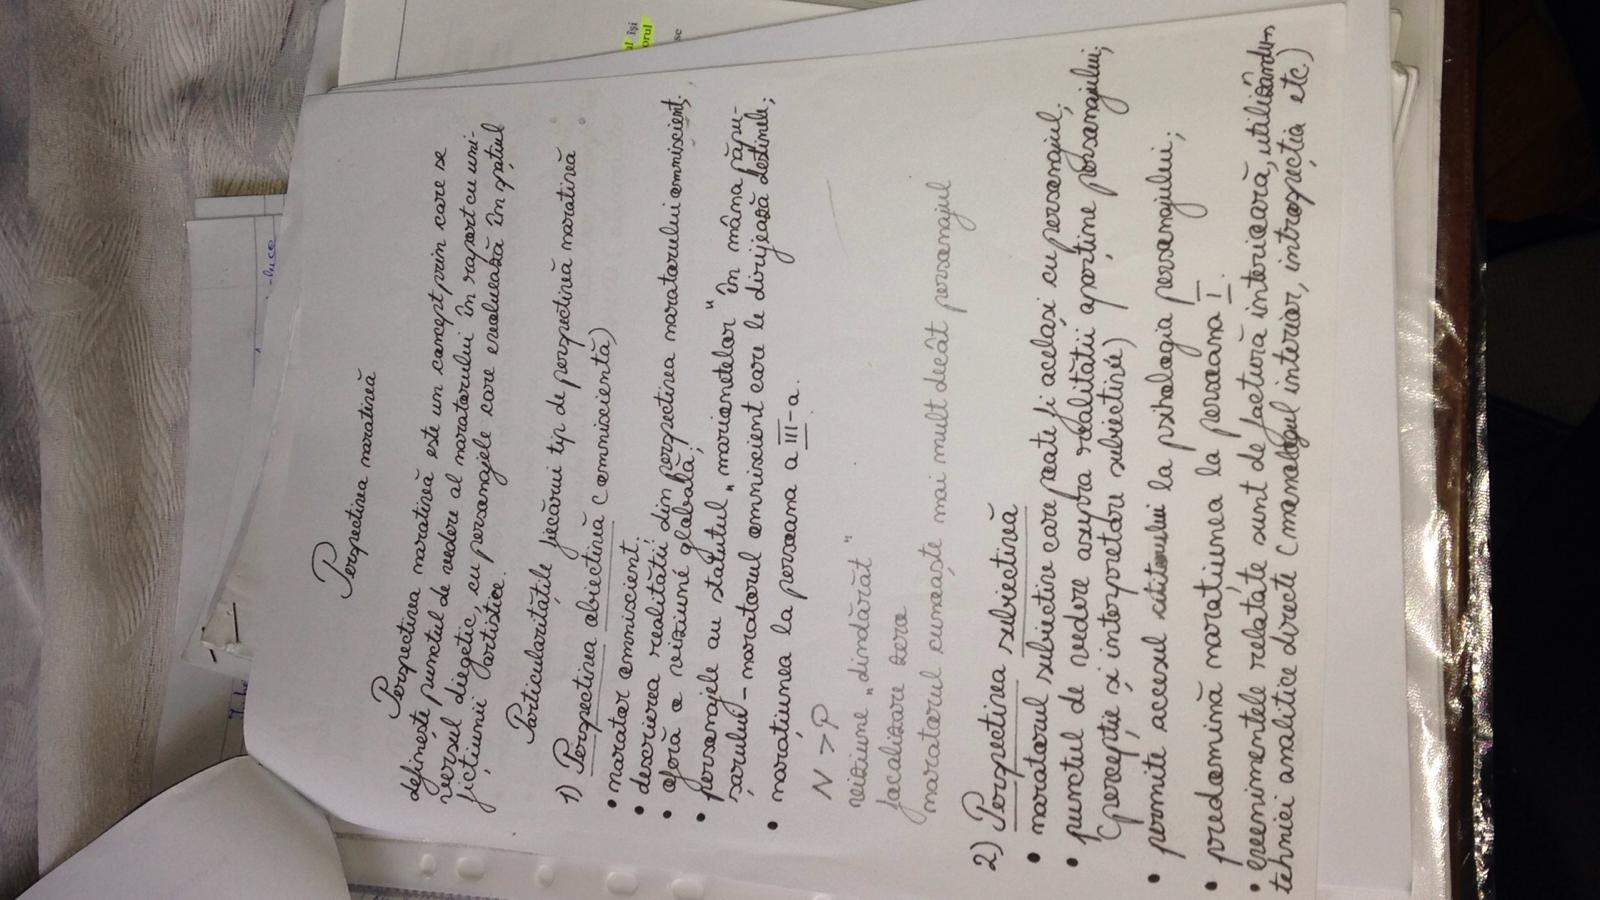 Perspectiva narativă
Perspectiva narativă este un concept prin care se
definește punctul de vedere al naratorului în raport cu uni-
versul diegetic, cu personajele care evoluează în spațiul
ficțiunii artistice.
Particularitățile fiecărui tip de perspectivă narativă
1) Perspectiva obiectivă (omniscientă)
• narator omniscient.
• descrierea realității din perspectiva naratorului omniscient;
• oferă o viziune globală;
• personajele au statutul „marionetelor" în mâna păpu-
șarului - naratorul omniscient care le dirijează destinele;
• narațiunea la persoana a III-a.
N > P
viziune „dindărăt"
focalizare zero
naratorul cunoaște mai mult decât personajul
2) Perspectiva subiectivă
• naratorul subiectiv care poate fi același cu personajul;
• punctul de vedere asupra realității aparține personajului;
(percepție și interpretare subiectivă)
• permite accesul cititorului la psihologia personajului;
• predomină narațiunea la persoana I.
• Evenimentele relatate sunt de factură interioară, utilizându-
tehnici analitice directe (monologul interior, introspecția etc.)
ul își
orul
se